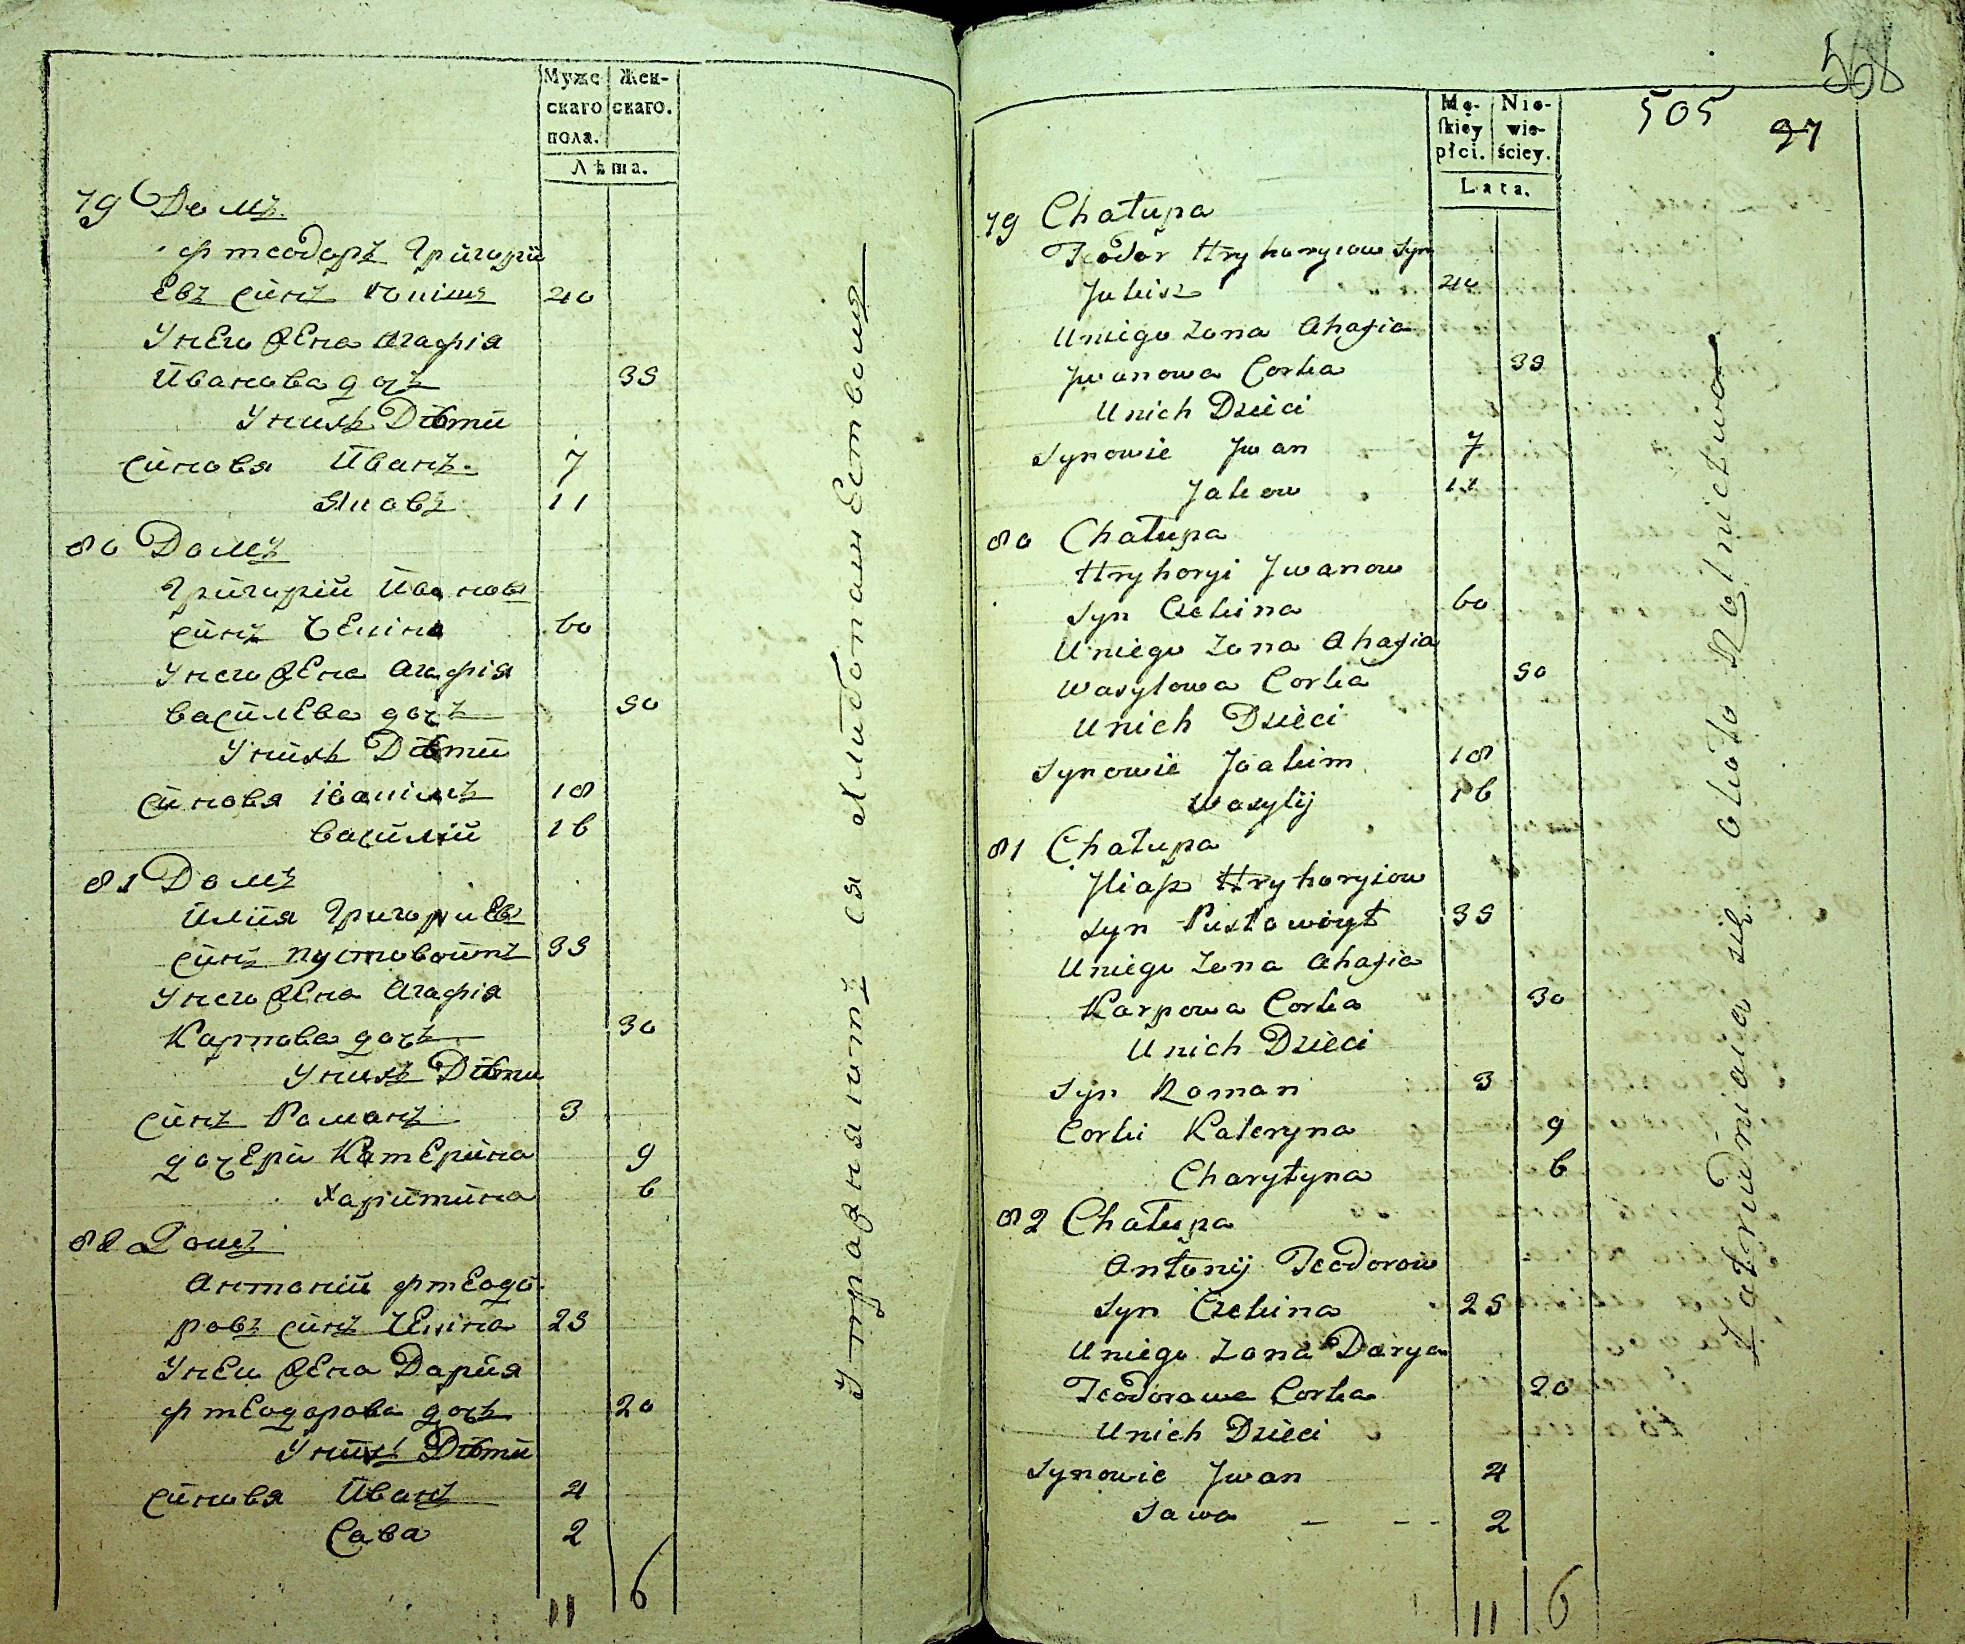 Муже Жен-
скаго скаго.
пола.
Лѣта.
79 Домъ
Фтеодоръ Григорїй
Евъ сынъ 40
Унего жена Агафїя
Иванова дочъ 35
Унихъ Дѣти
сынова Иванъ 7
Яковъ 11
80 Домъ
Григорїй Ивановъ
сынъ Чекина 60
Унего жена Агафїя
василева дочъ 50
Унихъ Дѣти
сынова їоакімъ 18
василїй 16
81 Домъ
Илїя Григориевъ
сынъ пустовойтъ 35
Унего жена Агафїя
Карпова дочъ 30
Унихъ Дѣти
сынъ Романъ 3
дочери Катерина 9
Харитина 6
82 Домъ
Антонїй фтеодо
ровъ сынъ Чекина 25
Унего жена Дария
фтеодорова дочъ 20
Унихъ Дѣти
сынова Иванъ 4
Сава 2
11 6
Упражняютъ ся хлибопашествомъ
568
505 97
Mę- Nie-
skiey wie-
płci. ściey.
Lata.
79 Chałupa
Teodor Hryhoryiow Syn
40
Uniego Zona Ahafia
Jwanowa Corka 35
Unich Dzieci
Synowie Jwan 7
Jakow 11
80 Chałupa
Hryhoryi Jwanow
Syn Czekina 60
Uniego Zona Ahafia
Wasylowa Corka 50
Unich Dzieci
Synowie Joakim 18
Wasylij 16
81 Chałupa
Jliasz Hryhoryiow
Syn Pustowoyt 35
Uniego Zona Ahafia
Karpowa Corka 30
Unich Dzieci
Syn Roman 3
Corki Kateryna 9
Charytyna 6
82 Chałupa
Antonij Teodorow
Syn Czekina 25
Uniego Zona Darya
Teodorowa Corka 20
Unich Dzieci
Synowie Jwan 4
Sawa - - - 2
11 6
Zatrudniaią się około Rolnictwa